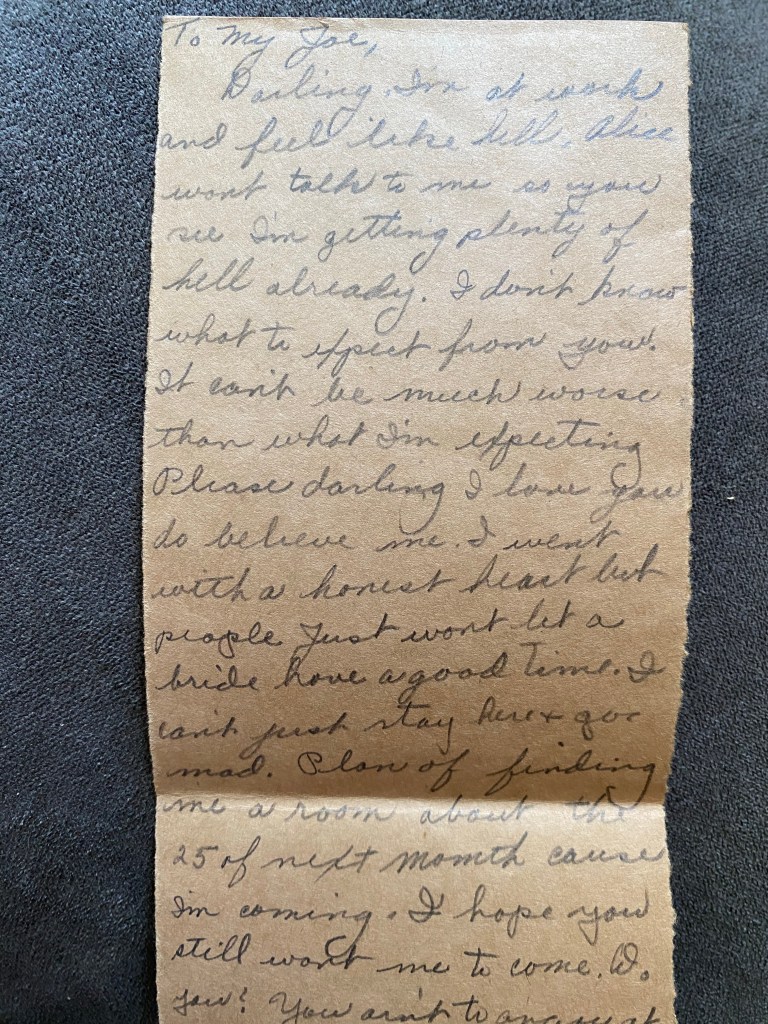 To My Joe,
Darling, I'm at work
and feel like hell. Alice
wont talk to me so you
see I'm getting plenty of
hell already. I don't know
what to expect from you.
It can't be much worse
than what I'm expecting
Please darling I love you
do believe me. I went
with a honest heart but
people Just wont let a
bride have a good time. I
can't just stay here + go
mad. Plan of finding
me a room about the
25 of next month cause
I'm coming. I hope you
still want me to come. Do
you? You ain't to